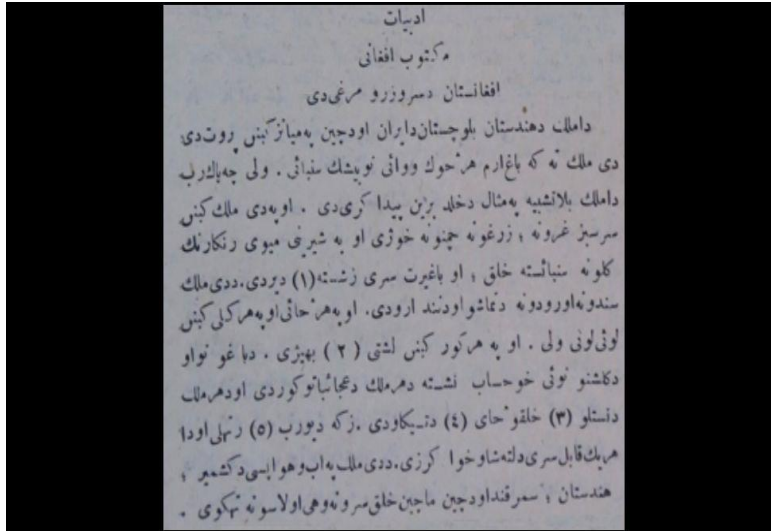 ادبیات
مکتوب افغانی
افغانستان دسروزرو مرغی دی
داملك دهندستان بلوچستان دایران اودچین په میانز کښ پروت دی
دی ملك ته که باغ ارم هر څوك ووائی نو بیشك ښائی . ولی چه پاك رب
داملك بلاتشبیه په مثال دخلد برین پیدا کړی دی . او په دی ملك کښ
سر سبز غرونه ؛ زرغونه چمنونه خوژی او په شیرینی میوی رنکارنك
کلونه ښائسته خلق ؛ او باغیرت سری زشته (۱) دیردی . ددی ملك
سندونه اورودونه دتماشو اودننداروdی . او په هر ځائی او په هر کلی کښ
لوئی لوئی ولی . او په هر کور کښ لښتی (۲) بهیژی . دباغو نواو
دکلشنو نوئی خو حساب نشته دهر ملك دعجائباتو کوردی اودهر ملك
دنستلو (۳) خلقو ځای (۴) دتیکاودی . زکه دیورب (۵) رتلی اودا
هریك قابل سری دلته شاوخوا کرزی . ددی ملك په اب وهوا پسی دکشمیر ؛
هندستان ؛ سمرقند اودچین ماچین خلق سرونه وهی اولاسونه تمکوی .